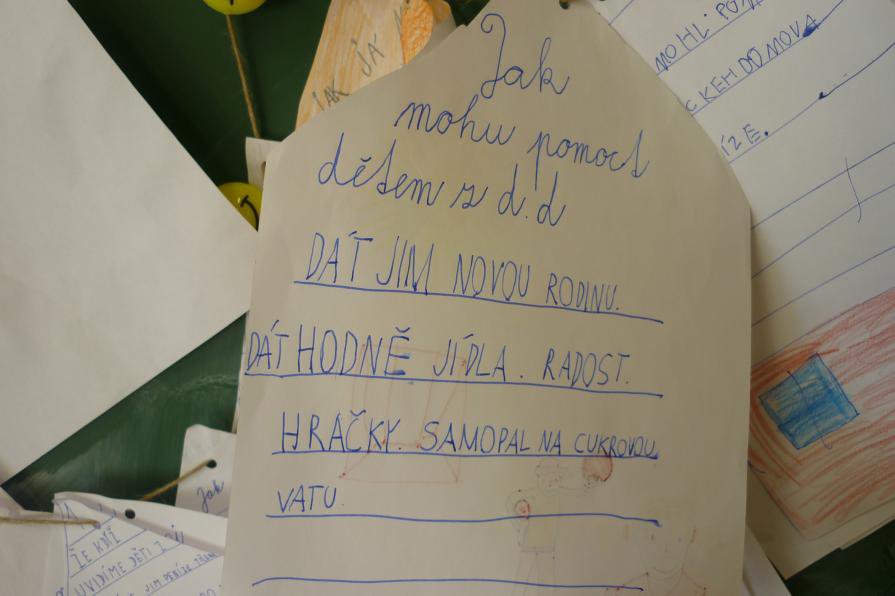 Jak
mohu pomoct
dětem z d.d
DÁT JIM NOVOU RODINU.
DÁT HODNĚ JÍDLA. RADOST.
HRAČKY. SAMOPAL NA CUKROVOU
VATU.
JAK JÁ
MOHL
CKEH DOMOVA
ÍZE.
Jak
ŽE KDŽ
UVIDÍME DĚTI
JIM